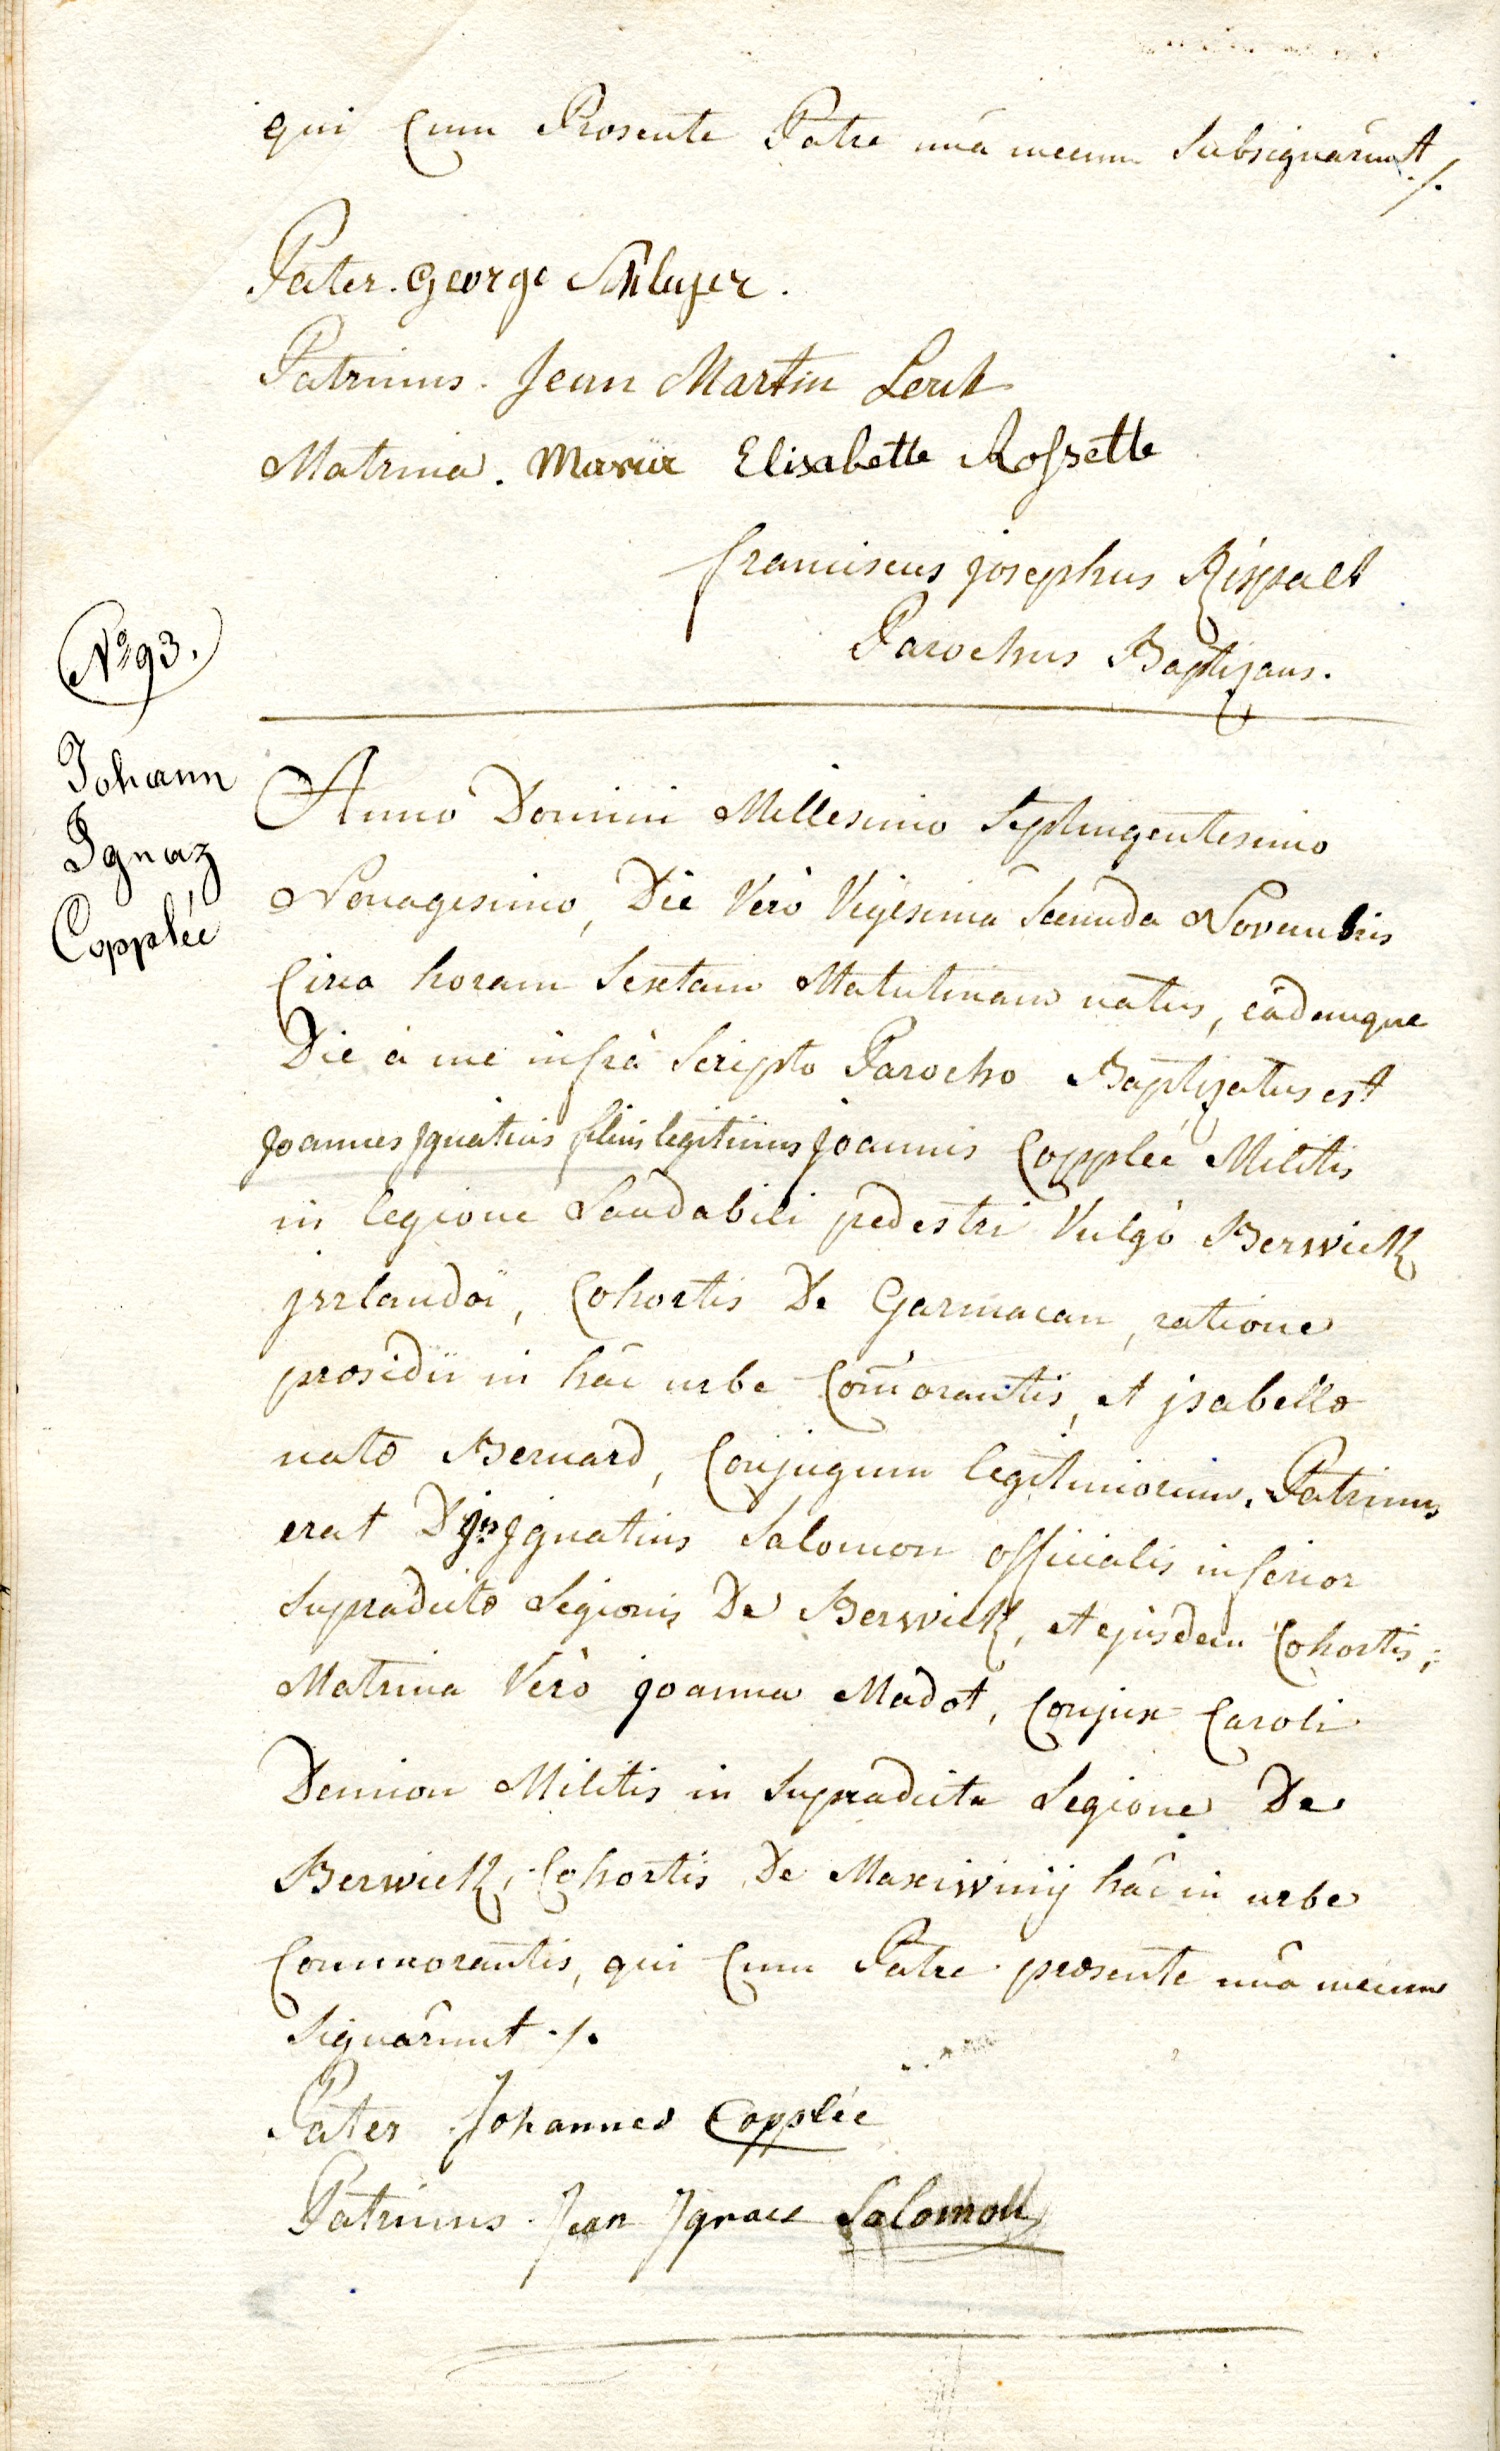 qui Cum Præsente Patre unà mecum Subsignârunt ./.
Pater. George Schlaser.
Patrinus. Jean Martin Lerch
Matrina. Maria Elisabetta Rossette
franciscus josephus Rispalt
Parochus Baptizans.
No 93.
Johann
Ignaz
Copplée
Anno Domini Millesimo Septingentesimo
Nonagesimo, Die Verò Vigesima Secunda Novembris
Circa horam Sextam Matutinam natus, eâdemque
Die à me infrà Scripto Parocho Baptizatus est
joannes jgnatius filius legitimus joannis Copplée Militis
in legione Laudabili pedestri Vulgò Berwick
jrrlandoi, Cohortis De Garmacan, ratione
præsidii in hâc urbe Com̄orantis, et jsabellæ
natæ Bernard, Conjugum legitimorum. Patrinus
erat D jos jgnatius Salomon officialis inferior
Supradictæ Legionis De Berwick, et ejusdem Cohortis,
Matrina Verò joanna Madot, Conjux Caroli
Demion Militis in Supradicta Legione De
Berwick, Cohortis De Maxiwinij hâc in urbe
Commorantis, qui Cum Patre præsente unà mecum
Signârunt ./.
Pater Johannes Copplée
Patrinus. Jean Jgnace Salomon